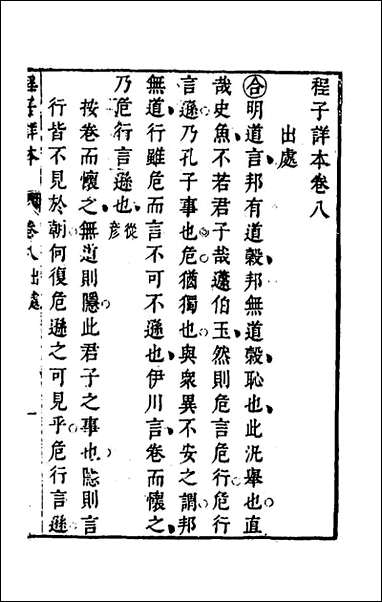 程子詳本卷八
出處
合明道言邦有道穀邦無道穀恥也此汎舉也直
哉史魚不若君子哉蘧伯玉然則危言危行危行
言遜乃孔子事也危猶獨也與衆異不安之謂邦
無道行雖危而言不可不遜也伊川言卷而懷之
乃危行言遜也彦從
按卷而懷之無道則隱此君子之事也隱則言
行皆不見於朝何復危遜之可見乎危行言遜
程子詳本 卷八出處 一